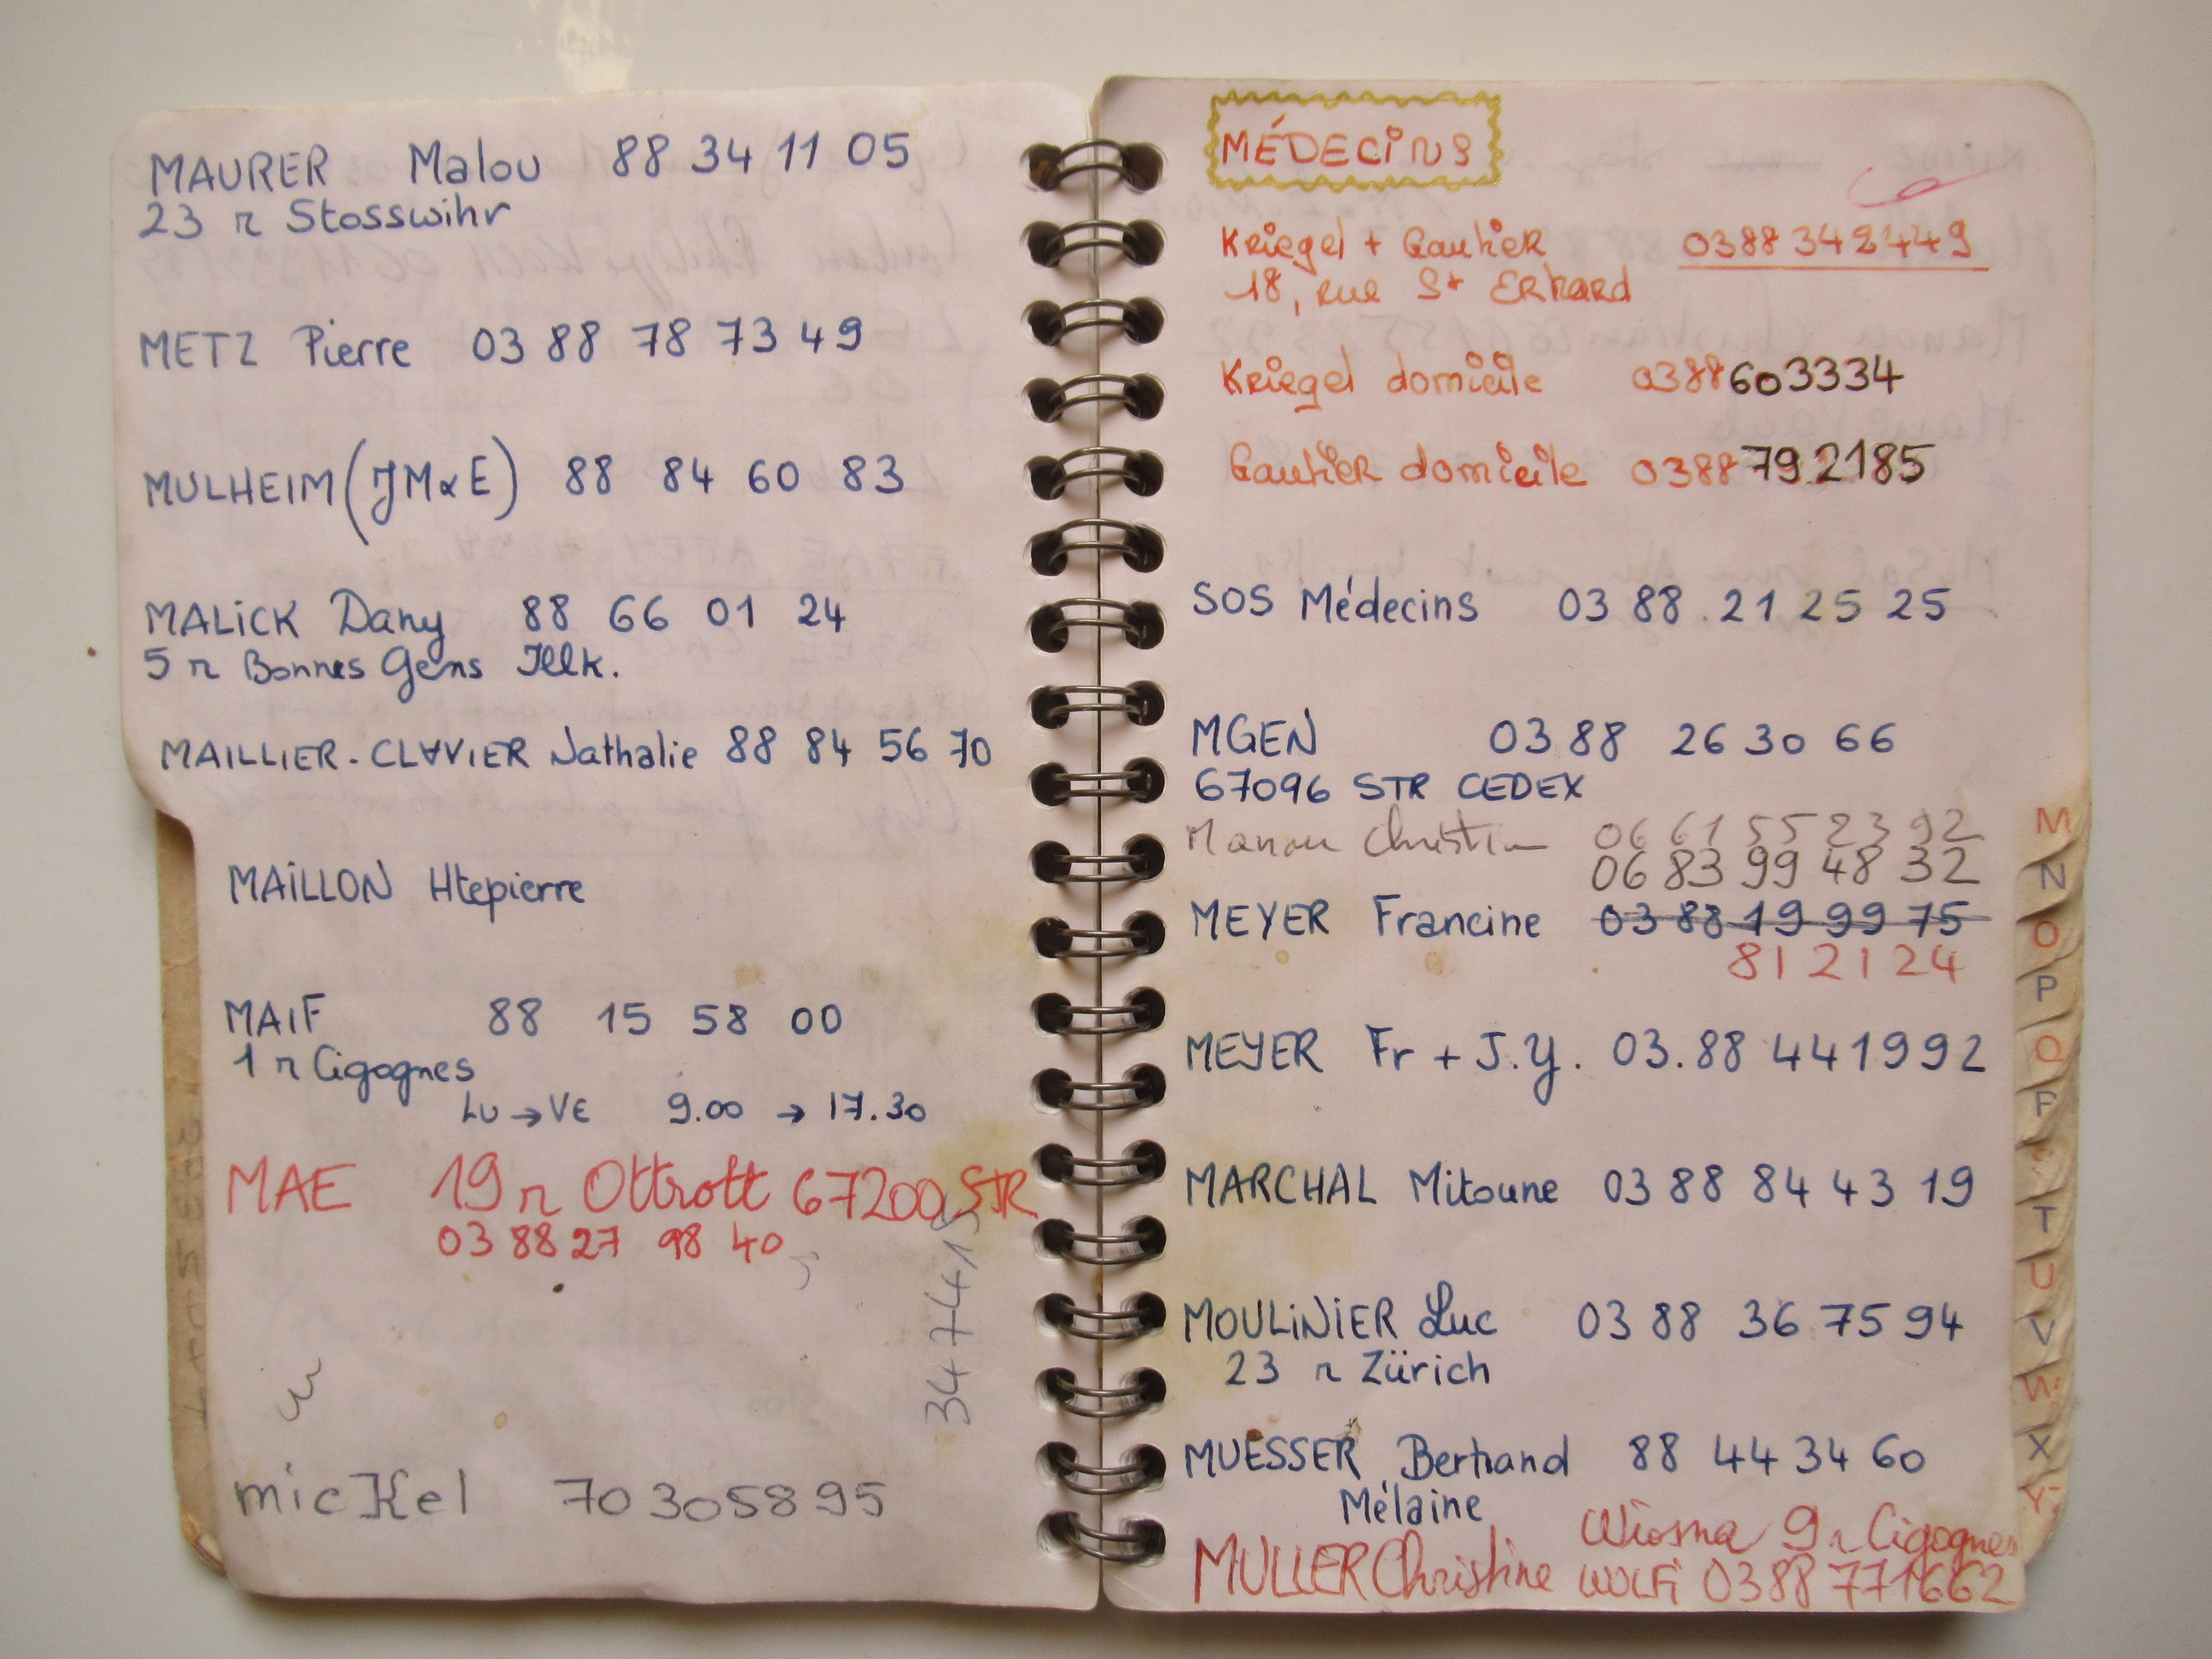 MAURER Malou 88 34 11 05
23 r Stosswihr
METZ Pierre 03 88 78 73 49
MULHEIM (JM & E) 88 84 60 83
MALICK Dany 88 66 01 24
5 r Bonnes Gens Illk.
MAILLIER-CLAVIER Nathalie 88 84 56 70
MAILLON Htepierre
MAIF 88 15 58 00
1 r Cigognes
LU → VE 9.00 → 17.30
MAE 19 r Ottrott 67200 STR
03 88 27 98 40
34 74 15
micKel 70 305895
MÉDECINS
Kriegel + Gautier 0388 342449
18, rue St Erhard
Kriegel domicile 0388603334
Gautier domicile 0388792185
SOS Médecins 03 88 21 25 25
MGEN 03 88 26 30 66
67096 STR CEDEX
Manou Christian 06 61 55 23 92
06 83 99 48 32
MEYER Francine 03 88 19 99 75
81 21 24
MEYER Fr + J.Y. 03.88 441992
MARCHAL Mitoune 03 88 84 43 19
MOULINIER Luc 03 88 36 75 94
23 r Zürich
MUESSER Bertrand 88 44 34 60
Mélaine
Wiosna 9 r Cigognes
MULLER Christine WOLFI 0388 771662
M
N
O
P
Q
T
U
V
W
X
Y